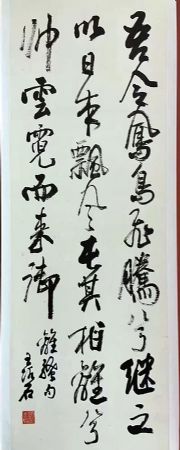 吾令鳳鳥飛騰兮繼之
以日夜飄風屯其相離兮
帥雲霓而來御
離騷句